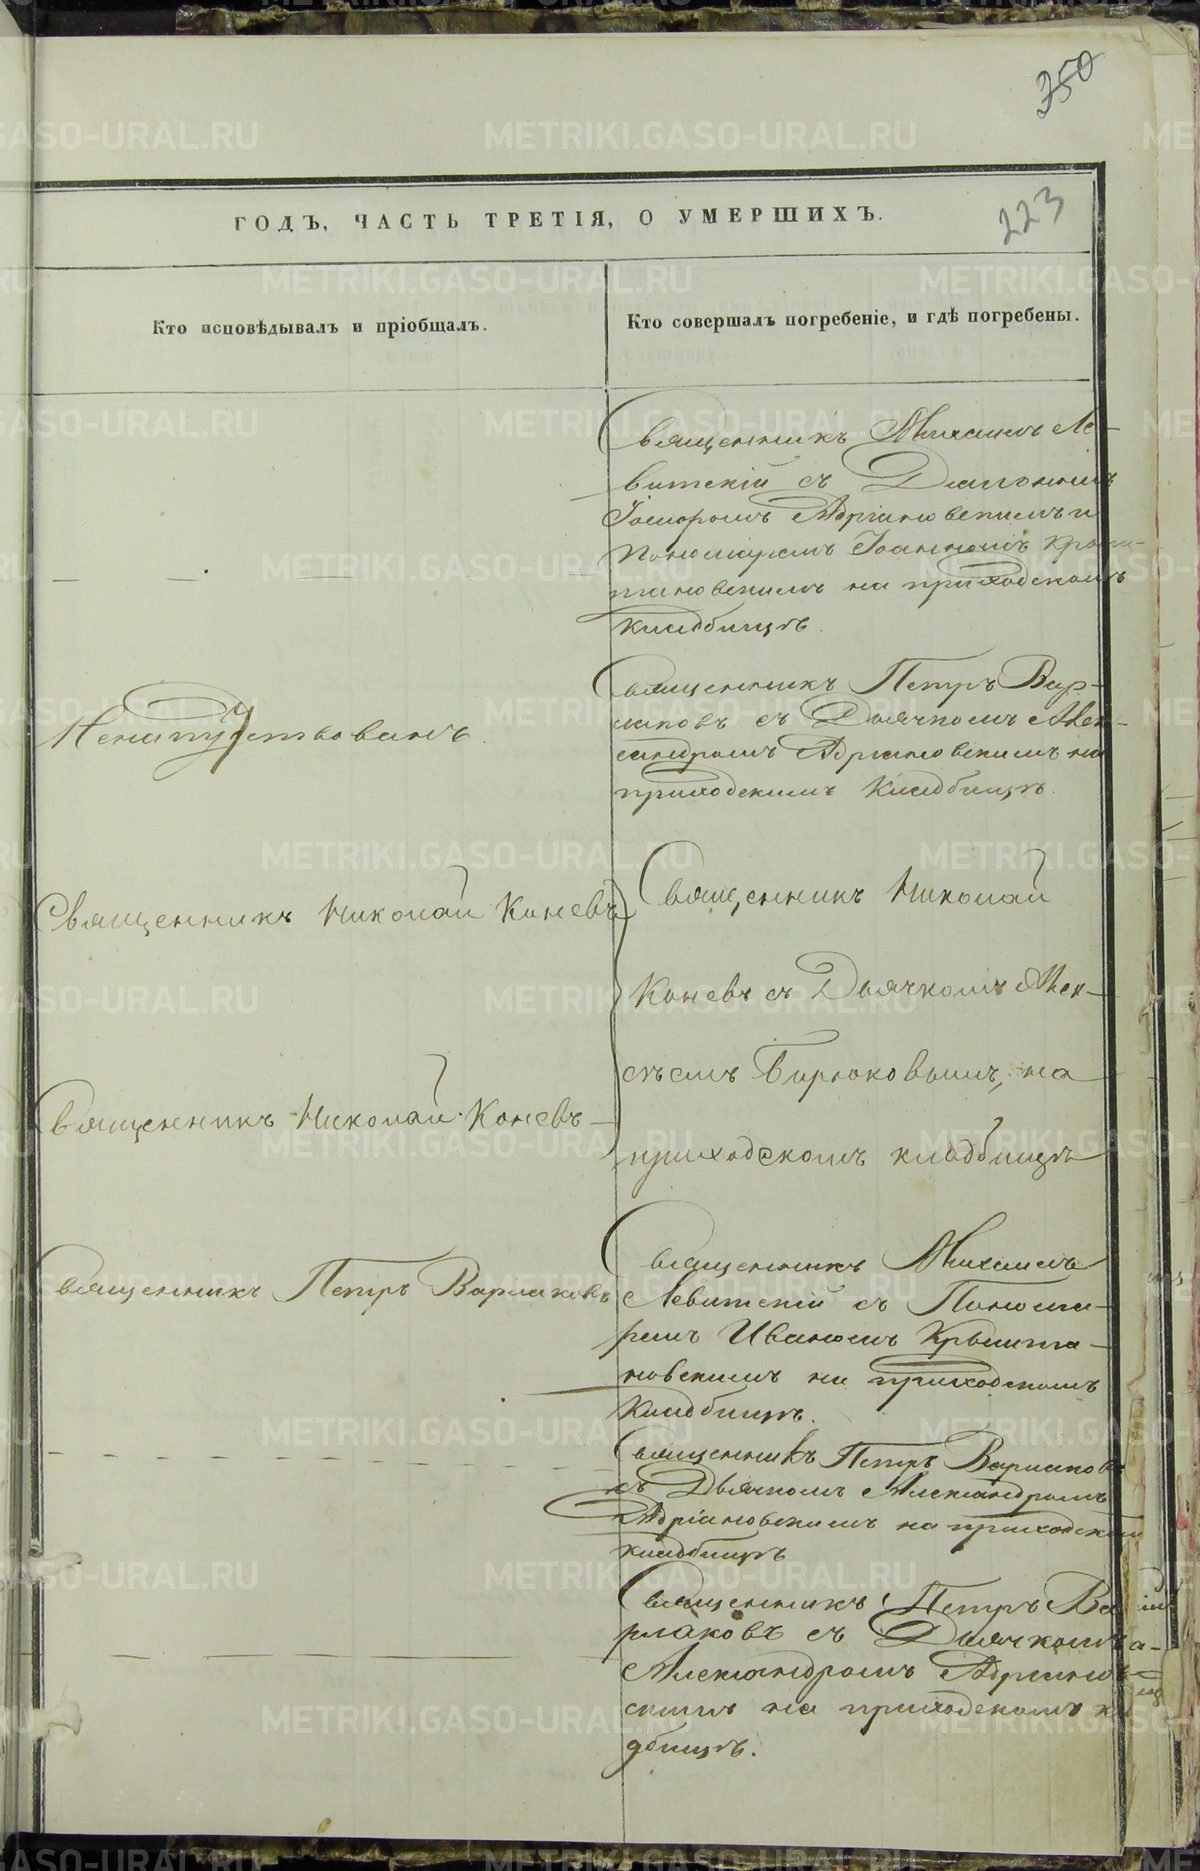 350
223
ГОДЪ, ЧАСТЬ ТРЕТІЯ, О УМЕРШИХЪ.
Кто исповѣдывалъ и пріобщалъ.
Кто совершалъ погребеніе, и гдѣ погребены.
Священникъ Михаилъ Ле-
витскій съ Діакономъ
Адріановскимъ и
Пономаремъ Іоанномъ
на приходскомъ
кладбищѣ.
Ненапутствованъ
Священникъ Петръ Вар-
лаковъ съ Дьячкомъ Алек-
сандромъ Адріановскимъ на
приходскимъ Кладбищѣ.
Священникъ Николай Каневъ
Священникъ Николай
Каневъ съ Дьячкомъ Алек-
сѣемъ Бирюковымъ, на
приходскомъ кладбищѣ
Священникъ Николай Каневъ
Священникъ Петръ Варлаковъ
Священникъ Михаилъ
Левитскій съ Понома-
ремъ Иваномъ Крышта-
новскимъ на приходскомъ
Кладбищѣ.
Священникъ Петръ Варлаковъ
съ Дьячкомъ Александромъ
Адріановскимъ на приходскомъ
кладбищѣ
Священникъ Петръ Ва
рлаковъ съ Дьячкомъ
Александромъ Адріанов
скимъ на приходскомъ кла
дбищѣ.
METRIKI.GASO-URAL.RU